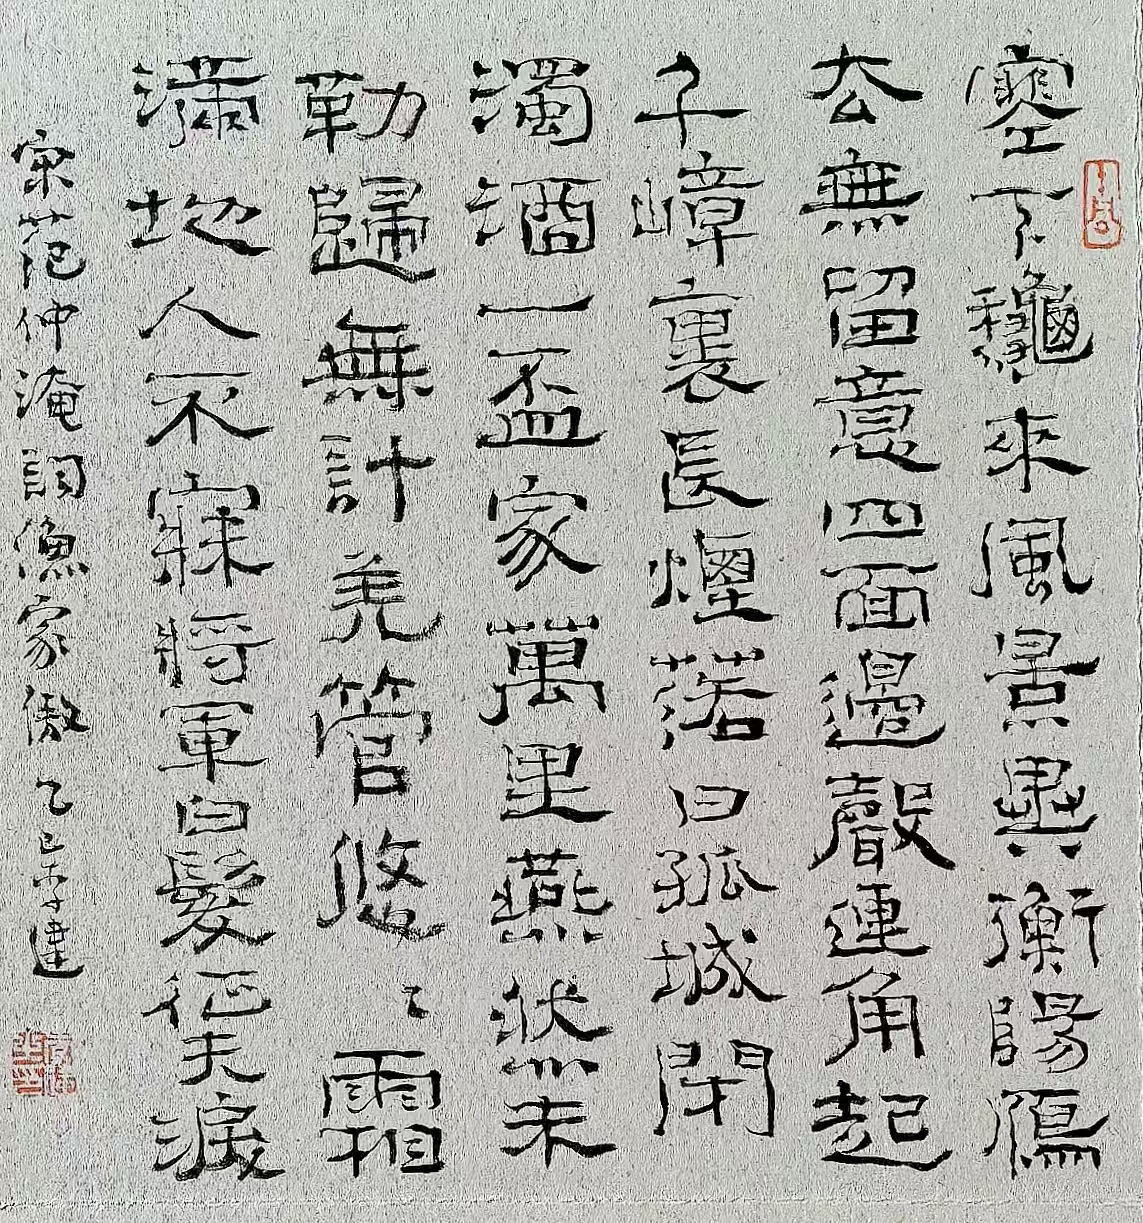 塞下龝來風景異衡陽鴈
去無留意四面邊聲連角起
千嶂裏長煙落日孤城閉
濁酒一盃家萬里燕然未
勒歸無計羌管悠〻霜
滿地人不寐將軍白髮征夫淚
宋范仲淹詞漁家傲乙巳